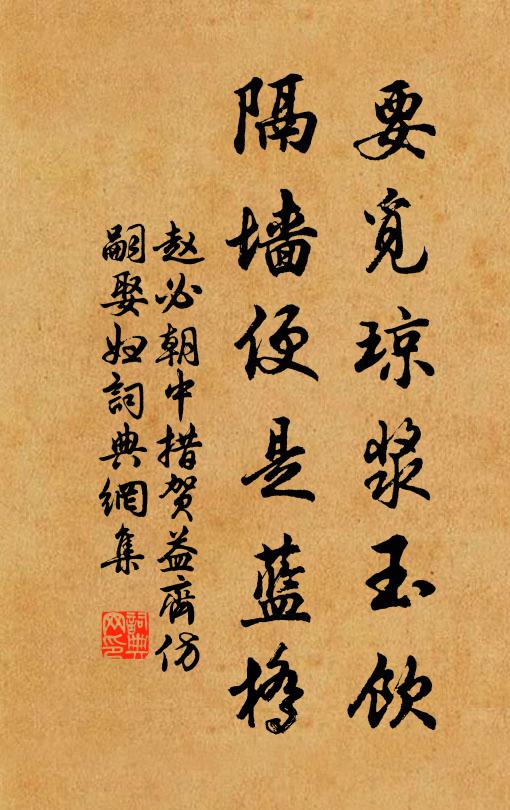 要觅琼浆玉饮
隔墙便是蓝桥
赵必朝中措贺益斋仿
嗣娶妇詞典網集
詞典網印